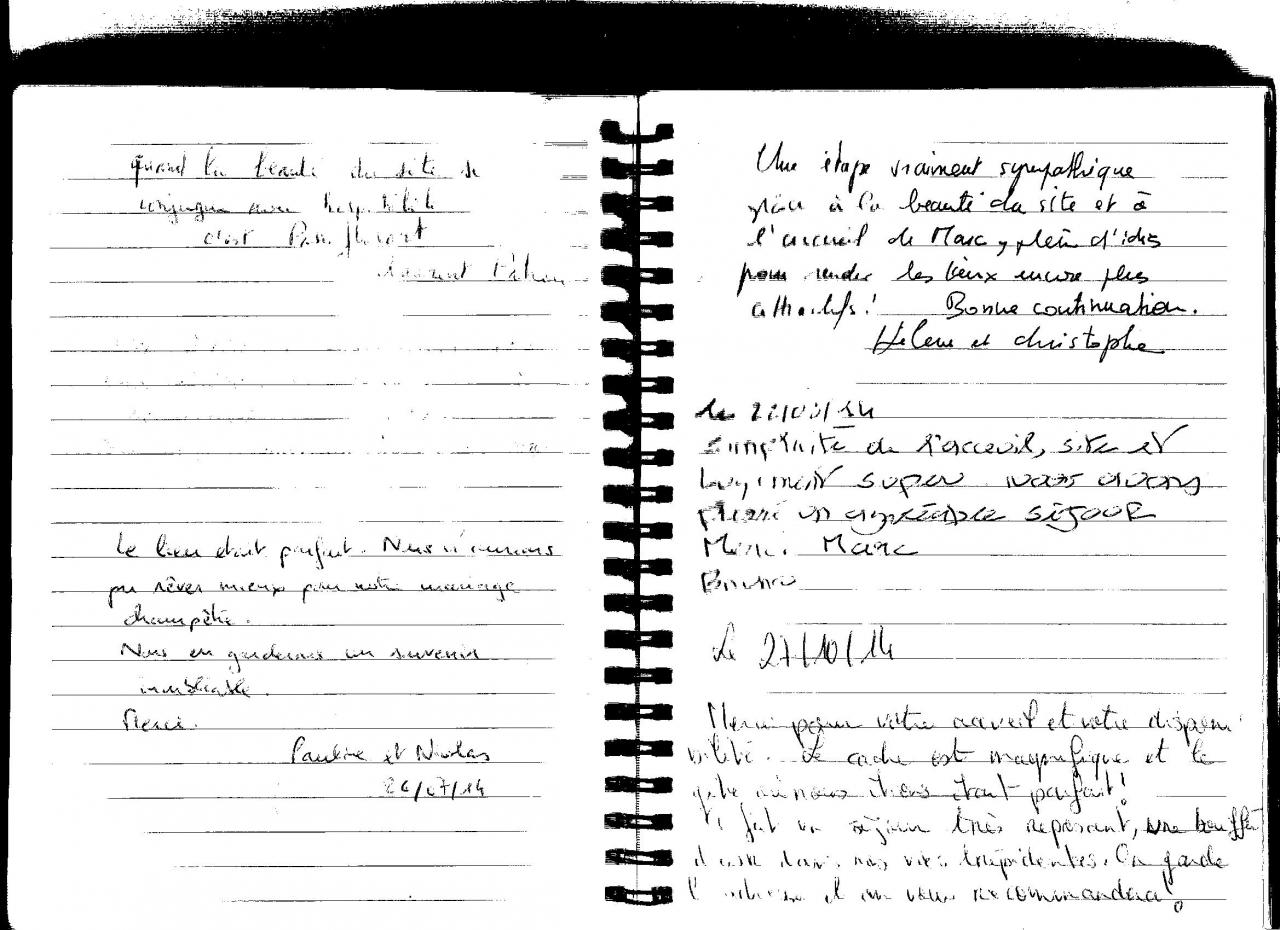 quand la beauté du site se
conjugue avec hospitalité
c'est
Laurent
Le lieu était parfait. Nous n'aurions
pu rêver mieux pour notre mariage
champêtre.
Nous en garderons un souvenir
inoubliable.
Merci.
Pauline et Nicolas
26/07/14
Une étape vraiment sympathique
grâce à la beauté du site et à
l'accueil de Marc, plein d'idées
pour rendre les lieux encore plus
attractifs! Bonne continuation.
Helene et christophe
le 14
simplicité de l'acceuil, site et
logement super nous avons
passé un agréable séjour
Merci Marc
Bruno
Le 27/10/14
Merci pour votre accueil et votre disponi
bilité. Le cadre est magnifique et le
gîte où nous étions était parfait!
Ce fut un séjour très reposant, une bouffée
d'air dans nos vies trépidantes. On garde
l'adresse et on vous recommandera!